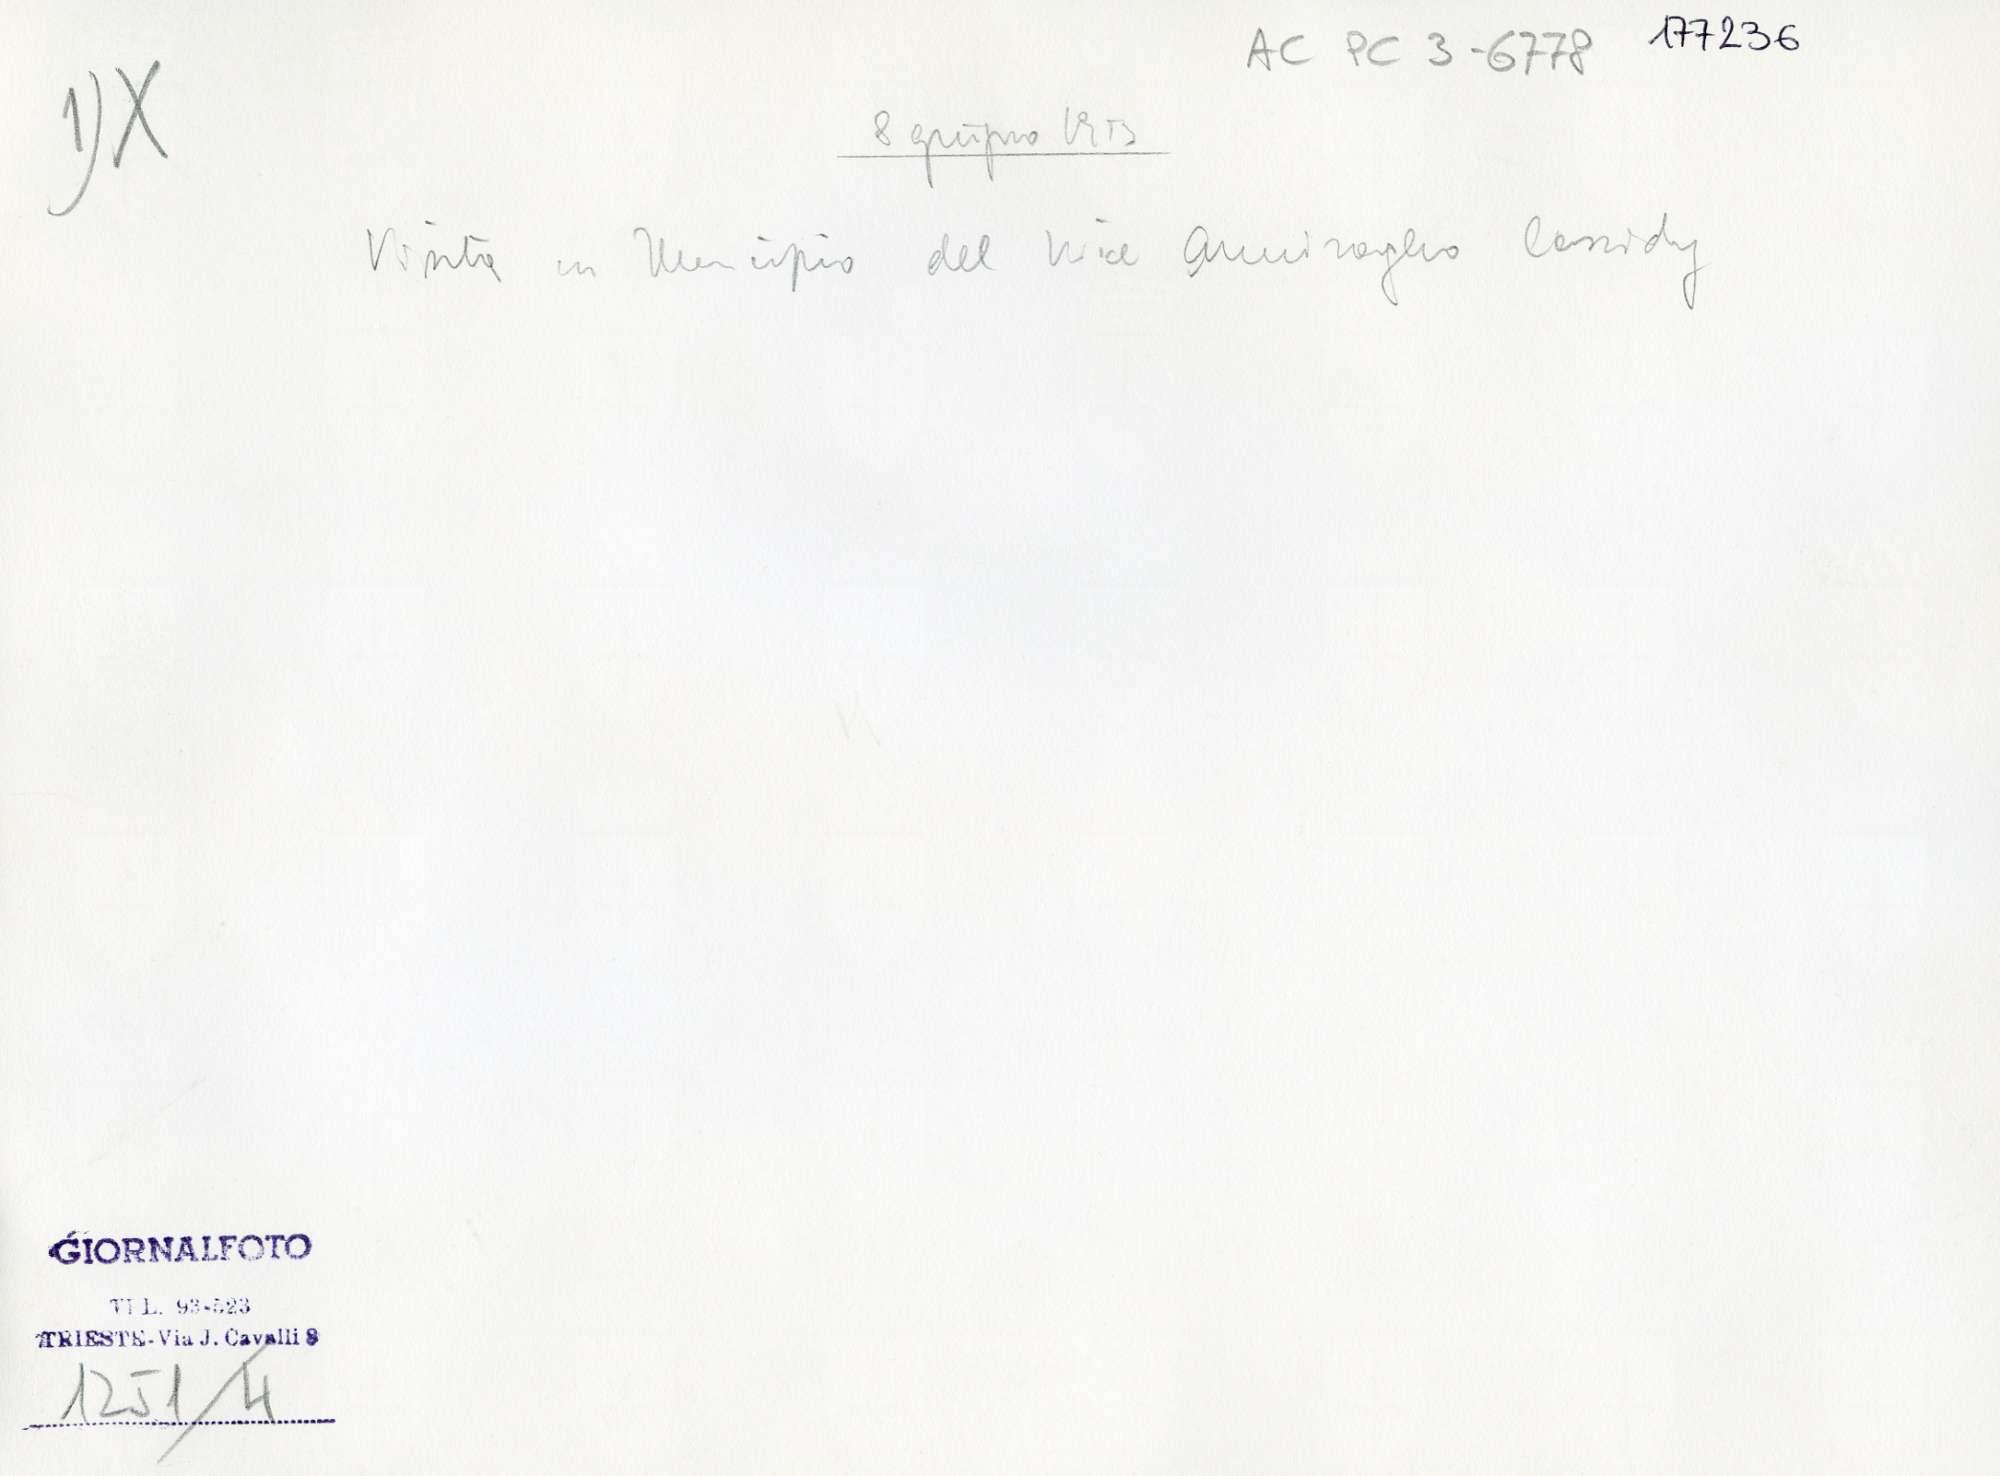 AC PC 3-6778 177236
1) X
8 giugno 1953
Visita in Municipio del Vice Ammiraglio Cassidy
GIORNALFOTO
TEL. 93-523
TRIESTE-Via J. Cavalli 8
1251/4